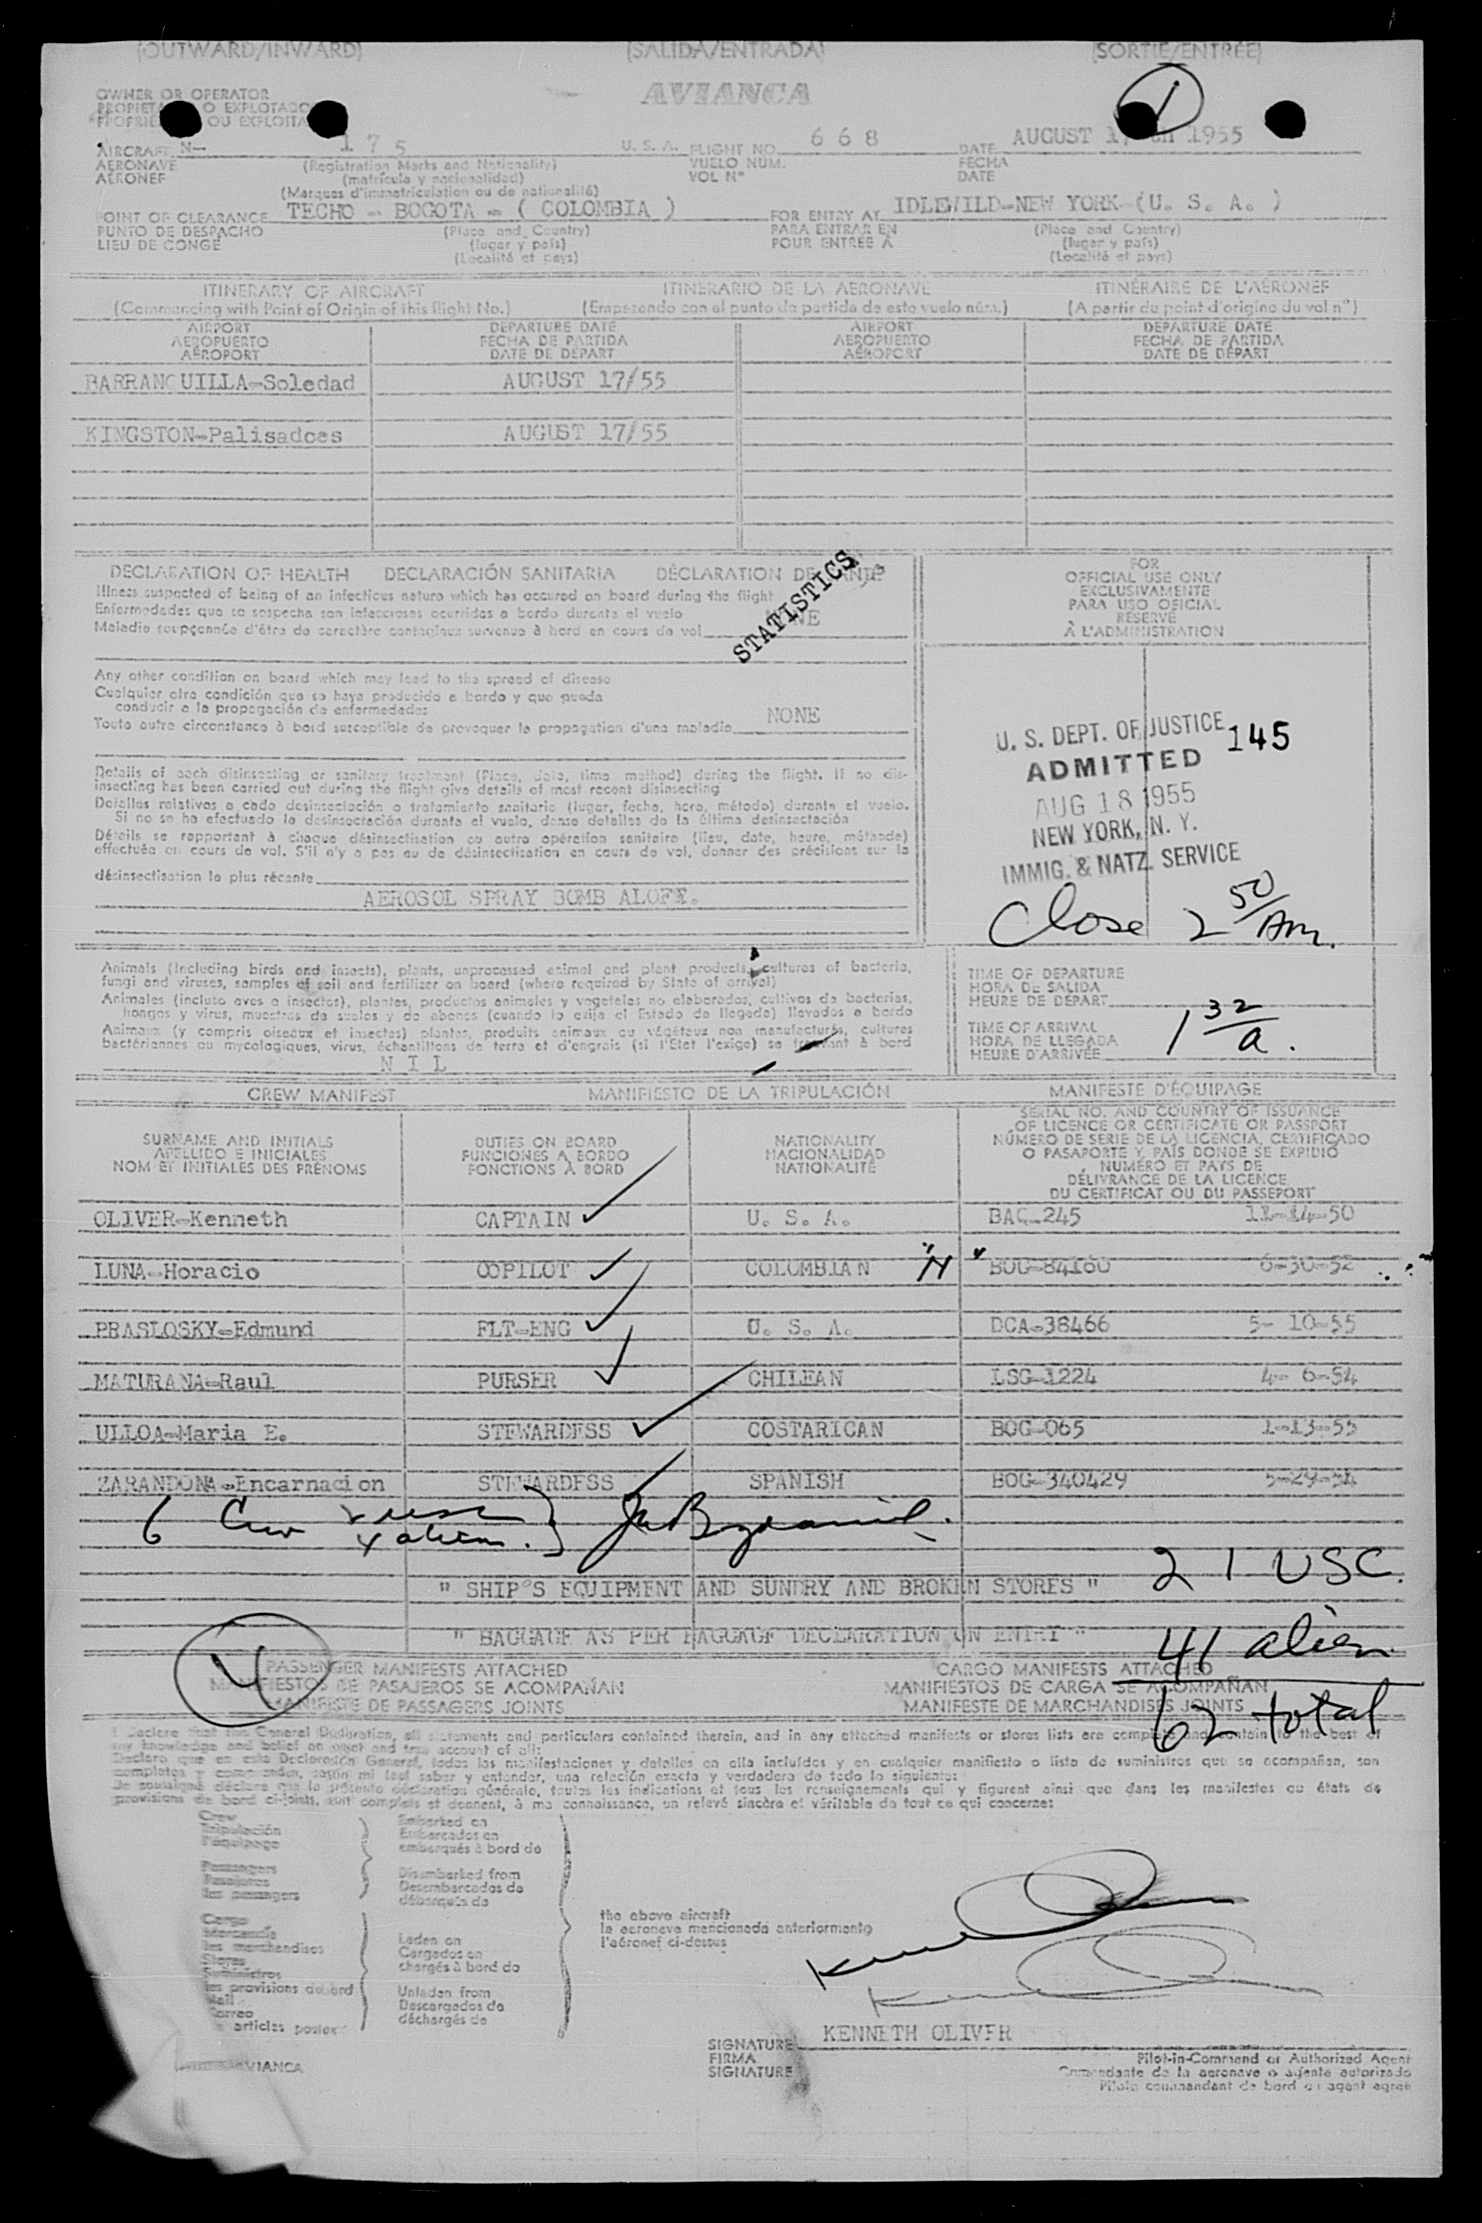 (OUTWARD/INWARD) (SALIDA/ENTRADA) (SORTIE/ENTRÉE)
OWNER OR OPERATOR AVIANCA 1
AIRCRAFT N- 175 U. S. A. FLIGHT NO. 668 DATE AUGUST 1955
AERONAVE (Registration Marks and Nationality) VUELO NUM. FECHA
AÉRONEF (matrícula y nacionalidad) VOL N° DATE
(Marques d'immatriculation ou de nationalité)
POINT OF CLEARANCE TECHO - BOGOTA - ( COLOMBIA ) FOR ENTRY AT IDLEWILD-NEW YORK (U. S. A. )
PUNTO DE DESPACHO (Place and Country) PARA ENTRAR EN (Place and Country)
LIEU DE CONGÉ (lugar y país) POUR ENTRÉE A (lugar y país)
(Localité et pays) (Localité et pays)
ITINERARY OF AIRCRAFT ITINERARIO DE LA AERONAVE ITINÉRAIRE DE L'AÉRONEF
(Commencing with Point of Origin of this flight No.) (Empezando con el punto de partida de este vuelo núm.) (A partir du point d'origine du vol n°)
AIRPORT DEPARTURE DATE AIRPORT DEPARTURE DATE
AEROPUERTO FECHA DE PARTIDA AEROPUERTO FECHA DE PARTIDA
AÉROPORT DATE DE DÉPART AÉROPORT DATE DE DÉPART
BARRANQUILLA-Soledad AUGUST 17/55
KINGSTON-Palisadoes AUGUST 17/55
DECLARATION OF HEALTH DECLARACIÓN SANITARIA DÉCLARATION DE
STATISTICS
Illness suspected of being of an infectious nature which has occured on board during the flight
Enfermedades que se sospecha son infecciosas ocurridas a bordo durante el vuelo
Maladie soupçonnée d'être de caractère contagieux survenue à bord en cours de vol
FOR
OFFICIAL USE ONLY
EXCLUSIVAMENTE
PARA USO OFICIAL
RÉSERVÉ
À L'ADMINISTRATION
Any other condition on board which may lead to the spread of disease
Cualquier otra condición que se haya producido a bordo y que pueda
conducir a la propagación de enfermedades
Toute autre circonstance à bord susceptible de provoquer la propagation d'une maladie NONE
Details of each disinsecting or sanitary treatment (Place, date, time method) during the flight. If no dis-
insecting has been carried out during the flight give details of most recent disinsecting
Detalles relativos a cada desinsectación o tratamiento sanitario (lugar, fecha, hora, método) durante el vuelo.
Si no se ha efectuado la desinsectación durante el vuelo, dense detalles de la última desinsectación
Détails se rapportant à chaque désinsectisation ou autre opération sanitaire (lieu, date, heure, méthode)
effectuée en cours de vol. S'il n'y a pas eu de désinsectisation en cours de vol, donner des précisions sur la
désinsectisation la plus récente
AEROSOL SPRAY BOMB ALOFT.
U. S. DEPT. OF JUSTICE 145
ADMITTED
AUG 18 1955
NEW YORK, N. Y.
IMMIG. & NATZ. SERVICE
Close 2 50/Am.
Animals (Including birds and insects), plants, unprocessed animal and plant products, cultures of bacteria,
fungi and viruses, samples of soil and fertilizer on board (where required by State of arrival)
Animales (incluso aves o insectos), plantas, productos animales y vegetales no elaborados, cultivos de bacterias,
hongos y virus, muestras de suelos y de abonos (cuando lo exija el Estado de llegada) llevados a bordo
Animaux (y compris oiseaux et insectes) plantes, produits animaux ou végétaux non manufacturés, cultures
bactériennes ou mycologiques, virus, échantillons de terre et d'engrais (si l'Etat l'exige) se trouvant à bord
N I L
TIME OF DEPARTURE
HORA DE SALIDA
HEURE DE DÉPART
TIME OF ARRIVAL 1 32/a.
HORA DE LLEGADA
HEURE D'ARRIVÉE
CREW MANIFEST MANIFIESTO DE LA TRIPULACIÓN MANIFESTE D'ÉQUIPAGE
SURNAME AND INITIALS
APELLIDO E INICIALES
NOM ET INITIALES DES PRÉNOMS
DUTIES ON BOARD
FUNCIONES A BORDO
FONCTIONS À BORD
NATIONALITY
NACIONALIDAD
NATIONALITÉ
SERIAL NO. AND COUNTRY OF ISSUANCE
OF LICENCE OR CERTIFICATE OR PASSPORT
NÚMERO DE SERIE DE LA LICENCIA, CERTIFICADO
O PASAPORTE Y PAÍS DONDE SE EXPIDIÓ
NUMÉRO ET PAYS DE
DÉLIVRANCE DE LA LICENCE
DU CERTIFICAT OU DU PASSEPORT
OLIVER-Kenneth CAPTAIN U. S. A. BAC-245
LUNA-Horacio COPILOT COLOMBIAN "H" BOG-84160 6-30-52
PRASLOSKY-Edmund FLT-ENG U. S. A. DCA-38466 5- 10-55
MATURANA-Raul PURSER CHILEAN LSC-1224 4- 6-54
ULLOA-Maria E. STEWARDESS COSTARICAN BOG-065 1-13-55
ZARANDONA-Encarnacion STEWARDESS SPANISH BOG-340429 5-29-54
6 Crew 2 usc
4 aliens.
" SHIP'S EQUIPMENT AND SUNDRY AND BROKEN STORES " 21 USC.
" BAGGAGE AS PER BAGGAGE DECLARATION ON ENTRY " 41 alien
62 total
4 PASSENGER MANIFESTS ATTACHED CARGO MANIFESTS ATTACHED
MANIFIESTOS DE PASAJEROS SE ACOMPAÑAN MANIFIESTOS DE CARGA SE ACOMPAÑAN
MANIFESTE DE PASSAGERS JOINTS MANIFESTE DE MARCHANDISES JOINTS
I Declare that this General Declaration, all statements and particulars contained therein, and in any attached manifests or stores lists are complete and contain to the best of
my knowledge and belief an exact and true account of all:
Declaro que en esta Declaración General, todas las manifestaciones y detalles en ella incluídos y en cualquier manifiesto o lista de suministros que se acompañan, son
completos y comprenden, según mi leal saber y entender, una relación exacta y verdadera de todo lo siguiente:
Je soussigné déclare que la présente déclaration générale, toutes les indications et tous les renseignements qui y figurent ainsi que dans les manifestes ou états de
provisions de bord ci-joints, sont complets et donnent, à ma connaissance, un relevé sincère et véritable de tout ce qui concerne:
Crew
Tripulación
l'équipage
Passengers
Pasajeros
les passagers
Cargo
Mercancía
les marchandises
Stores
Suministros
les provisions de bord
Mail
Correo
articles postaux
Embarked on
Embarcados en
embarqués à bord de
Disembarked from
Desembarcados de
débarqués de
Laden on
Cargados en
chargés à bord de
Unladen from
Descargados de
déchargés de
the above aircraft
la aeronave mencionada anteriormente
l'aéronef ci-dessus
SIGNATURE KENNETH OLIVER
FIRMA
SIGNATURE
Pilot-in-Command or Authorized Agent
Comandante de la aeronave o agente autorizado
Pilote commandant de bord ou agent agréé
AVIANCA